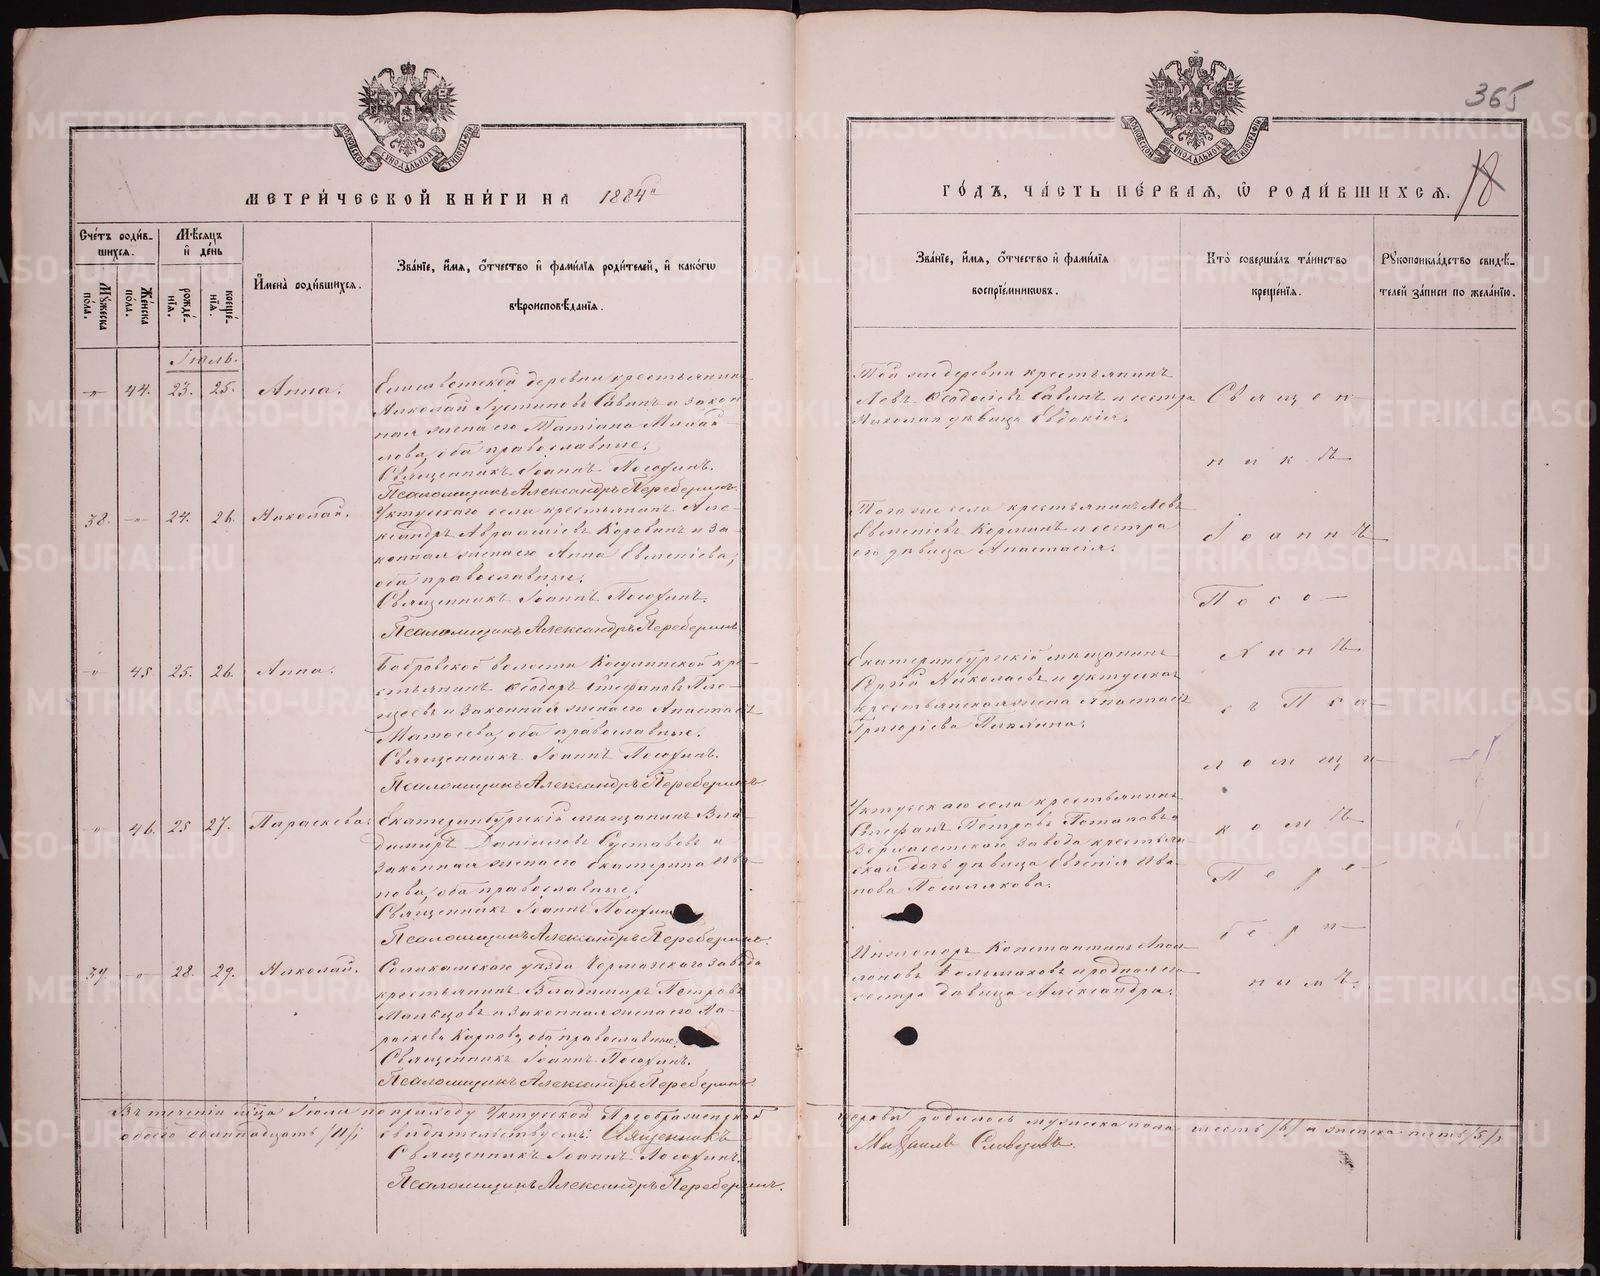 365
18
МЕТРИЧЕСКОЙ КНИГИ НА 1884й
ГОДЪ, ЧАСТЬ ПЕРВАЯ, Ѡ РОДИВШИХСЯ.
Счетъ родив-
шихся.
Мужеска пола.
Женска пола.
Мѣсяцъ
и день
рожде-
нія.
креще-
нія.
Имена родившихся.
Званіе, имя, отчество и фамилія родителей, и какогѡ
вѣроисповѣданія.
Званіе, имя, отчество и фамилія
воспріемниковъ.
Кто совершалъ таинство
крещенія.
Рукоприкладство свидѣ-
телей записи по желанію.
Іюль.
44. 23. 25. Анна.
Елисаветской деревни крестьянинъ
Николай Іустиновъ Савинъ и закон
ная жена его Татіана
оба православные.
Священникъ Іоаннъ Посохинъ.
Псаломщикъ Александръ Переберинъ.
Той же деревни крестьянинъ
Левъ Ѳеодосіевъ Савинъ и сестра
Николая дѣвица Евдокія.
38. 24. 26. Николай.
Уктусскаго села крестьянинъ Але-
ксандръ Аврааміевъ Коровинъ и за-
конная жена его Анна Евменіева,
оба православные.
Священникъ Іоаннъ Посохинъ.
Псаломщикъ Александръ Переберинъ
Того же села крестьянинъ Левъ
Евменіевъ и сестра
его дѣвица Анастасія.
45. 25. 26. Анна.
Бобровской волости Косулинской кре-
стьянинъ Ѳеодоръ Стефановъ Пле-
щеевъ и законная жена его Анастасія
Матѳеева, оба православные.
Священникъ Іоаннъ Посохинъ.
Псаломщикъ Александръ Переберинъ
Екатеринбургскій мѣщанинъ
Сергій Николаевъ и Уктусская
крестьянская жена Анастасія
Григоріева
46. 25 27. Параскева.
Екатеринбургскій мѣщанинъ Вла-
димиръ Даніиловъ Суставовъ и
законная жена его Екатерина Ива-
нова, оба православные.
Священникъ Іоаннъ Посохинъ
Псаломщикъ Александръ Переберинъ.
Уктусскаго села крестьянинъ
Стефанъ Петровъ Потаповъ и
Верхисетскаго завода крестьян
ская дочь дѣвица Евгенія Ива
нова
39. 28. 29. Николай.
Соликамскаго уѣзда Чермазскаго завода
крестьянинъ Владимиръ Петровъ
Мальцовъ и законная жена его Па-
раскева Карпова, оба православные.
Священникъ Іоаннъ Посохинъ.
Псаломщикъ Александръ Переберинъ
Константинъ Апол
лоновъ Большаковъ и родная его
сестра дѣвица Александра.
Священ-
никъ
Іоаннъ
Посо-
хинъ
съ Пса-
ломщи-
комъ
Пере-
бери-
нымъ
Въ теченіи мѣсяца Іюля по приходу Уктусской Преображенской церкви родилось мужеска пола шесть /6/ а женска пять /5/,
обоего одиннадцать /11/, свидѣтельствуемъ: Священникъ Михаилъ Словцовъ
Священникъ Іоаннъ Посохинъ.
Псаломщикъ Александръ Переберинъ.